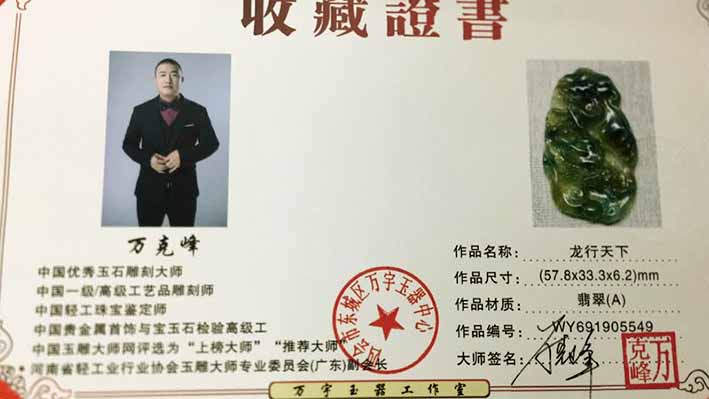 收藏證書
万克峰
中国优秀玉石雕刻大师
中国一级/高级工艺品雕刻师
中国轻工珠宝鉴定师
中国贵金属首饰与宝玉石检验高级工
中国玉雕大师网评选为“上榜大师”“推荐大师”
*河南省轻工业行业协会玉雕大师专业委员会(广东)副会长
会市东城区万宇玉器中心
作品名称： 龙行天下
作品尺寸： (57.8x33.3x6.2)mm
作品材质： 翡翠(A)
作品编号： WY691905549
大师签名：
万克峰
万宇玉器工作室